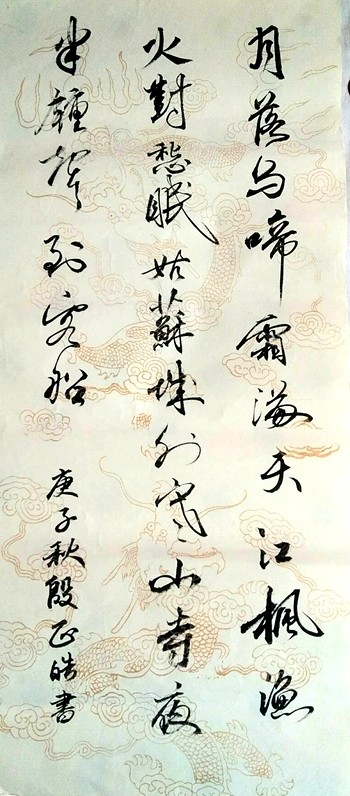 月落乌啼霜滿天江楓漁
火對愁眠姑蘇城外寒山寺夜
半鐘聲到客船
庚子秋殷正皓書